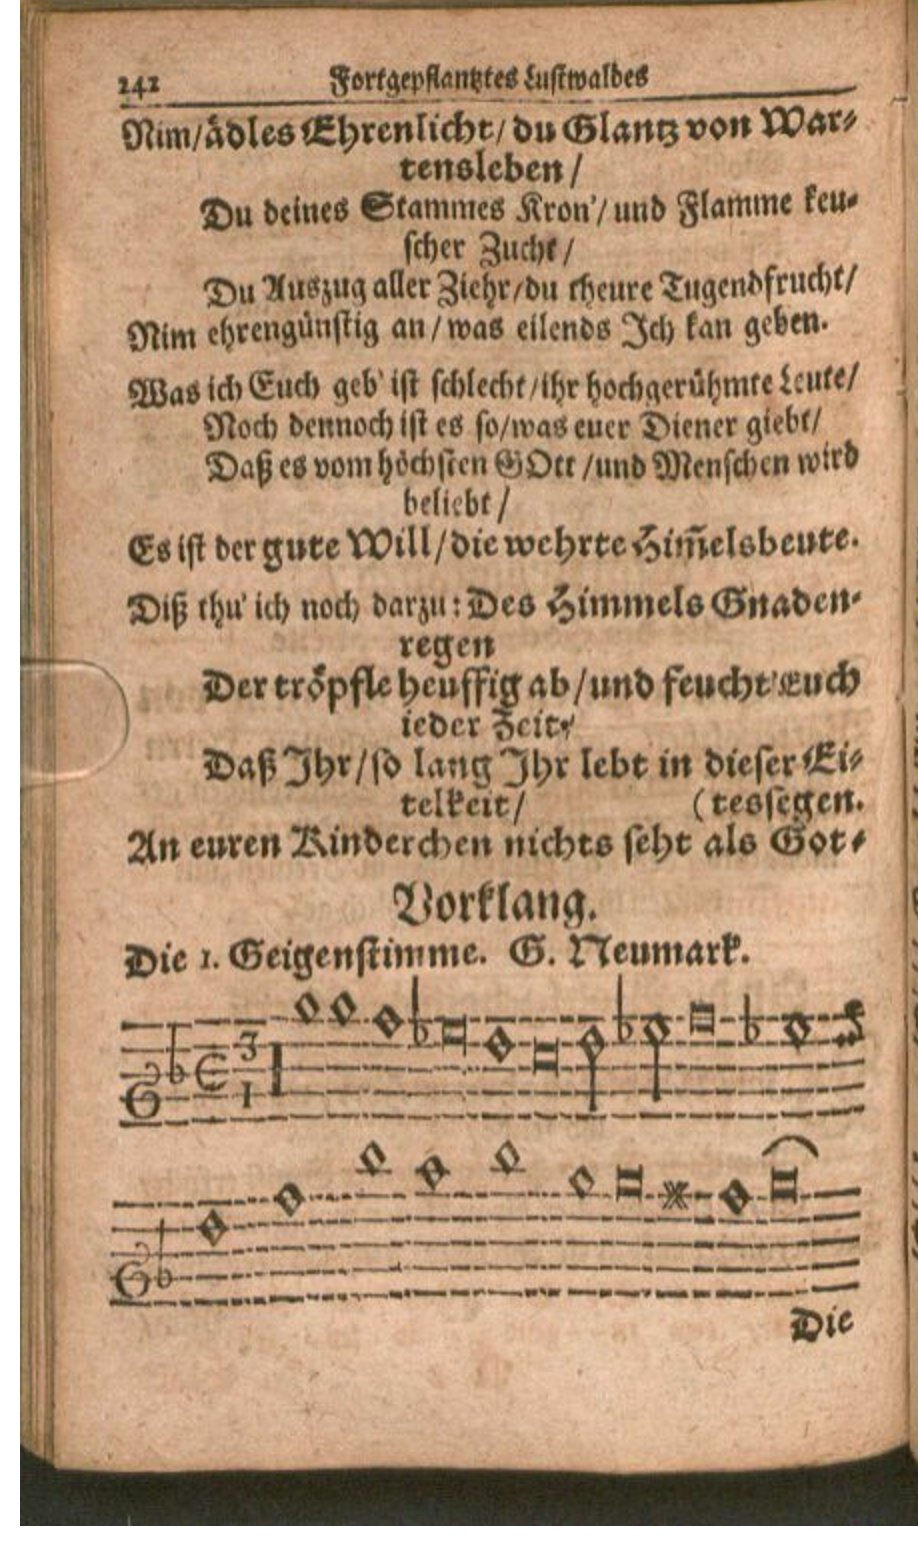 242 Fortgepflantztes Lustwaldes
Nim/ädles Ehrenlicht/du Glantz von War-
tensleben/
Du deines Stammes Kron'/und Flamme keu-
scher Zucht/
Du Auszug aller Ziehr/du theure Tugendfrucht/
Nim ehrengünstig an/was eilends Jch kan geben.
Was ich Euch geb' ist schlecht/ihr hochgerühmte Leute/
Noch dennoch ist es so/was euer Diener giebt/
Daß es vom höchsten GOtt/und Menschen wird
beliebt/
Es ist der gute Will/die wehrte Him̃elsbeute.
Diß thu' ich noch darzu: Des Himmels Gnaden-
regen
Der tröpfle heuffig ab/und feucht' Euch
ieder Zeit/
Daß Jhr/so lang Jhr lebt in dieser Ei-
telkeit/ (tessegen.
An euren Kinderchen nichts seht als Got-
Vorklang.
Die 1. Geigenstimme. G. Neumark.
3
1
Die